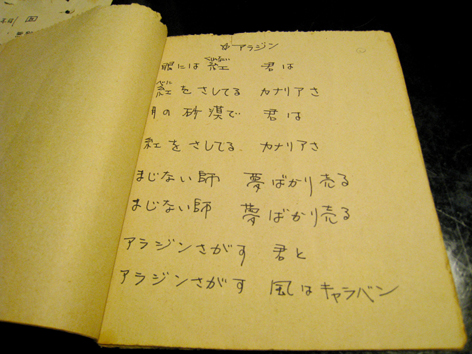 アラジン
眼には紅 君は
紅をさしてる カナリアさ
月の砂漠で 君は
紅をさしてる カナリアさ
まじない師 夢ばかり売る
まじない師 夢ばかり売る
アラジンさがす 君と
アラジンさがす 風はキャラバン